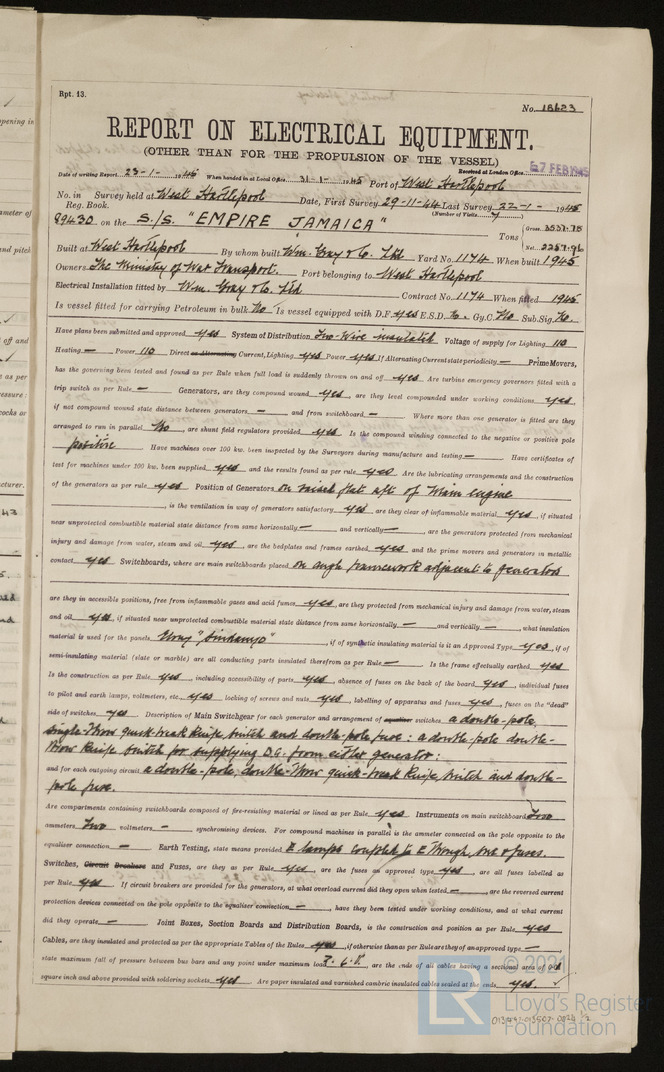 Rpt. 13.
No. 18623
REPORT ON ELECTRICAL EQUIPMENT.
(OTHER THAN FOR THE PROPULSION OF THE VESSEL)
Received at London Office 7 FEB 1945
Date of writing Report 23-1- 1945 When handed in at Local Office 31-1- 1945 Port of West Hartlepool
No. in Survey held at West Hartlepool Date, First Survey 29-11-44 Last Survey 22-1- 1945
Reg. Book. (Number of Visits 7)
99430 on the S./S. "EMPIRE JAMAICA" Tons Gross 3537.78 Net 2257.96
Built at West Hartlepool By whom built Wm. Gray & Co. Ltd Yard No. 1174 When built 1945
Owners The Ministry of War Transport. Port belonging to West Hartlepool
Electrical Installation fitted by Wm. Gray & Co. Ltd Contract No. 1174 When fitted 1945
Is vessel fitted for carrying Petroleum in bulk No Is vessel equipped with D.F. yes E.S.D. No. Gy.C. No Sub.Sig. No.
Have plans been submitted and approved yes System of Distribution Two-Wire insulated Voltage of supply for Lighting 110
Heating — Power 110 Direct or Alternating Current, Lighting yes Power yes If Alternating Current state periodicity — Prime Movers,
has the governing been tested and found as per Rule when full load is suddenly thrown on and off yes Are turbine emergency governors fitted with a
trip switch as per Rule — Generators, are they compound wound yes, are they level compounded under working conditions yes,
if not compound wound state distance between generators — and from switchboard — Where more than one generator is fitted are they
arranged to run in parallel No, are shunt field regulators provided yes Is the compound winding connected to the negative or positive pole
positive Have machines over 100 kw. been inspected by the Surveyors during manufacture and testing — Have certificates of
test for machines under 100 kw. been supplied yes and the results found as per rule yes Are the lubricating arrangements and the construction
of the generators as per rule yes Position of Generators on raised flat aft of Main engine
, is the ventilation in way of generators satisfactory yes are they clear of inflammable material yes, if situated
near unprotected combustible material state distance from same horizontally — and vertically —, are the generators protected from mechanical
injury and damage from water, steam and oil yes, are the bedplates and frames earthed yes and the prime movers and generators in metallic
contact yes Switchboards, where are main switchboards placed on angle framework adjacent to generators
are they in accessible positions, free from inflammable gases and acid fumes yes, are they protected from mechanical injury and damage from water, steam
and oil yes, if situated near unprotected combustible material state distance from same horizontally — and vertically —, what insulation
material is used for the panels "Sindanyo", if of synthetic insulating material is it an Approved Type yes, if of
semi-insulating material (slate or marble) are all conducting parts insulated therefrom as per Rule — Is the frame effectually earthed yes
Is the construction as per Rule yes, including accessibility of parts yes, absence of fuses on the back of the board yes, individual fuses
to pilot and earth lamps, voltmeters, etc. yes locking of screws and nuts yes, labelling of apparatus and fuses yes, fuses on the "dead"
side of switches yes Description of Main Switchgear for each generator and arrangement of equaliser switches a double-pole
single-throw quick-break knife switch and double-pole fuse: a double-pole double-
throw knife switch for supplying D.G. from either generator:
and for each outgoing circuit a double-pole, double-throw quick-break knife switch and double-
pole fuse.
Are compartments containing switchboards composed of fire-resisting material or lined as per Rule yes Instruments on main switchboard Two
ammeters Two voltmeters — synchronising devices. For compound machines in parallel is the ammeter connected on the pole opposite to the
equaliser connection — Earth Testing, state means provided 2 lamps coupled to E through sws & fuses.
Switches, Circuit Breakers and Fuses, are they as per Rule yes, are the fuses an approved type yes, are all fuses labelled as
per Rule yes If circuit breakers are provided for the generators, at what overload current did they open when tested —, are the reversed current
protection devices connected on the pole opposite to the equaliser connection —, have they been tested under working conditions, and at what current
did they operate — Joint Boxes, Section Boards and Distribution Boards, is the construction and position as per Rule yes
Cables, are they insulated and protected as per the appropriate Tables of the Rules yes, if otherwise than as per Rule are they of an approved type —
state maximum fall of pressure between bus bars and any point under maximum load 2.6.V., are the ends of all cables having a sectional area of 0.01
square inch and above provided with soldering sockets yes Are paper insulated and varnished cambric insulated cables sealed at the ends yes.
© 2021
LR
Lloyd's Register
Foundation